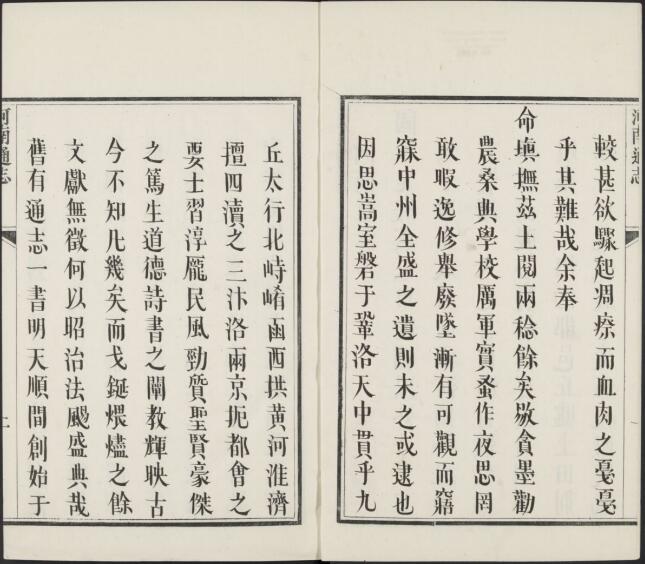 河南通志
較甚欲驟起凋瘵而血肉之戞戞
乎其難哉余奉
命塡撫茲土閱兩稔餘矣敭貪墨勸
農桑典學校厲軍實蚤作夜思罔
敢暇逸修舉廢墜漸有可觀而窹
寐中州全盛之遺則未之或逮也
因思嵩室磐于鞏洛天中貫乎九
丘太行北峙崤函西拱黄河淮濟
擅四瀆之三汴洛兩京扼都會之
要士習淳龐民風勁質聖賢豪傑
之篤生道德詩書之闡教輝映古
今不知凡幾矣而戈鋋煨燼之餘
文獻無徵何以昭治法颺盛典哉
舊有通志一書明天順間創始于
河南通志